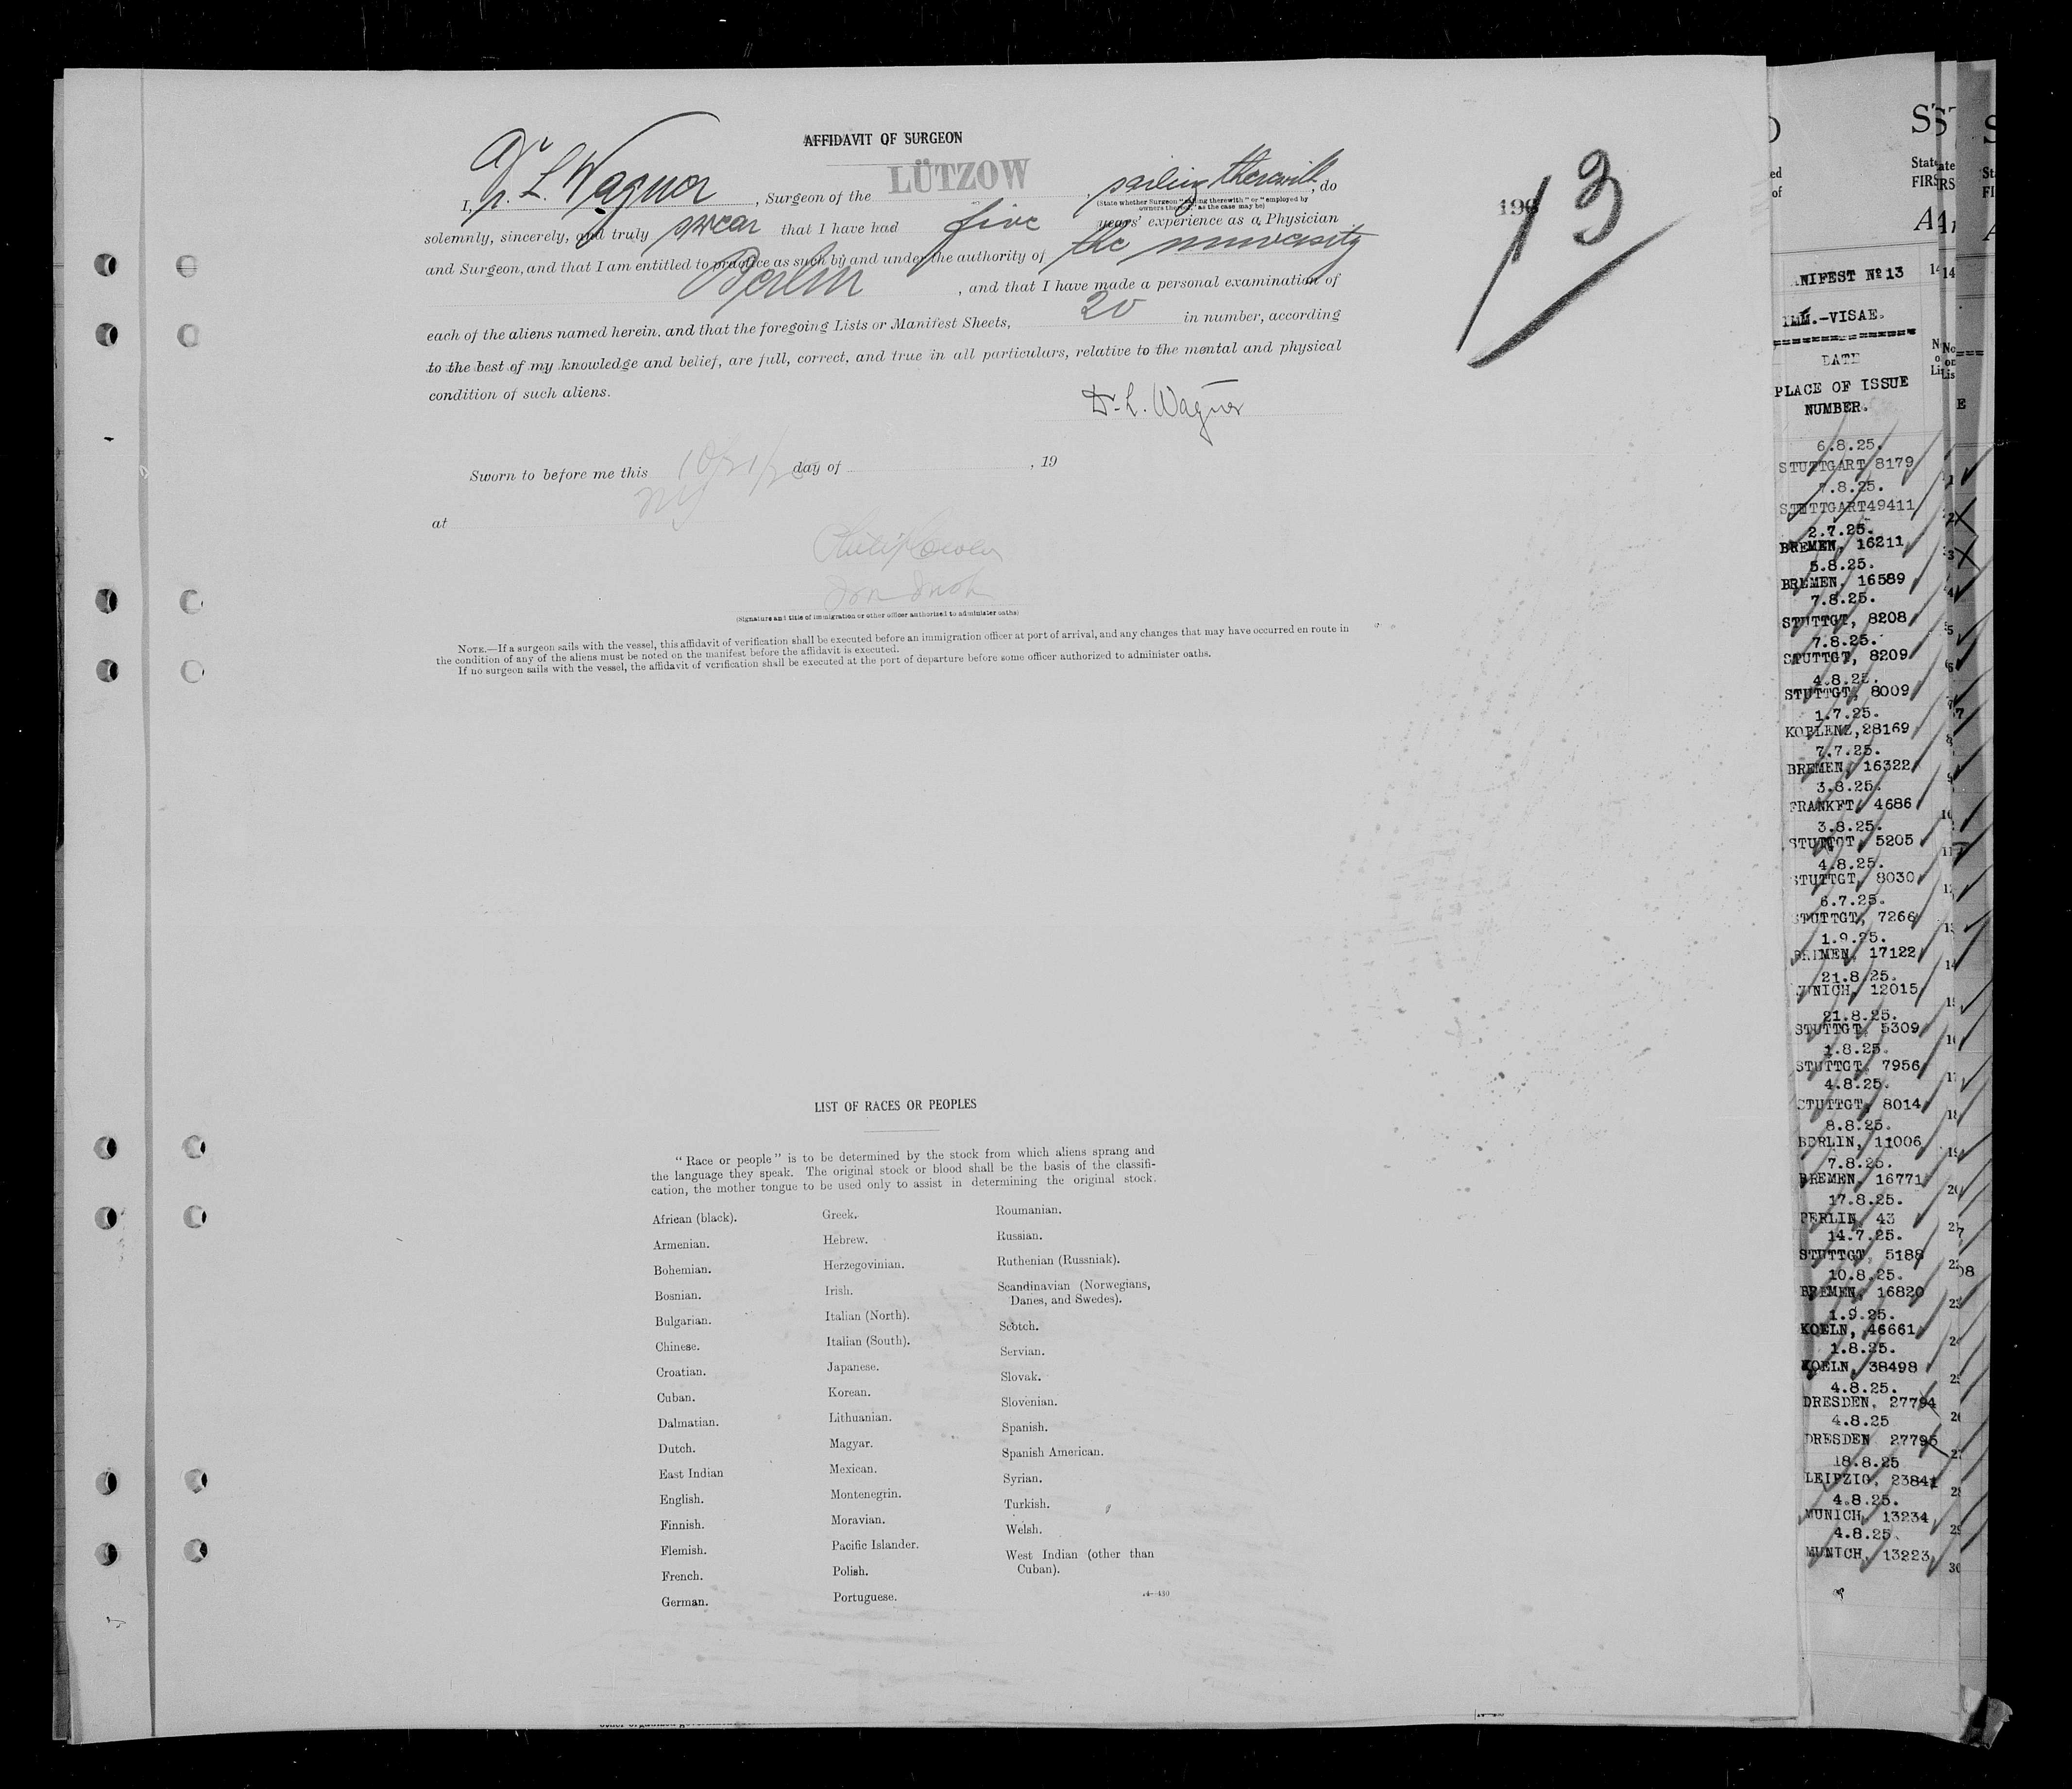 AFFIDAVIT OF SURGEON
I, Dr. L. Wagner, Surgeon of the LÜTZOW, sailing therewith, do
(State whether Surgeon "sailing therewith" or "employed by
owners thereof," as the case may be)
solemnly, sincerely, and truly swear that I have had five years' experience as a Physician
and Surgeon, and that I am entitled to practice as such by and under the authority of the university
Berlin, and that I have made a personal examination of
each of the aliens named herein, and that the foregoing Lists or Manifest Sheets, 20 in number, according
to the best of my knowledge and belief, are full, correct, and true in all particulars, relative to the mental and physical
condition of such aliens.
Dr. L. Wagner
Sworn to before me this 10/21/25 day of , 19
at NY
Philip
(Signature and title of immigration or other officer authorized to administer oaths)
NOTE.—If a surgeon sails with the vessel, this affidavit of verification shall be executed before an immigration officer at port of arrival, and any changes that may have occurred en route in
the condition of any of the aliens must be noted on the manifest before the affidavit is executed.
If no surgeon sails with the vessel, the affidavit of verification shall be executed at the port of departure before some officer authorized to administer oaths.
13
LIST OF RACES OR PEOPLES
"Race or people" is to be determined by the stock from which aliens sprang and
the language they speak. The original stock or blood shall be the basis of the classifi-
cation, the mother tongue to be used only to assist in determining the original stock.
African (black).
Armenian.
Bohemian.
Bosnian.
Bulgarian.
Chinese.
Croatian.
Cuban.
Dalmatian.
Dutch.
East Indian
English.
Finnish.
Flemish.
French.
German.
Greek.
Hebrew.
Herzegovinian.
Irish.
Italian (North).
Italian (South).
Japanese.
Korean.
Lithuanian.
Magyar.
Mexican.
Montenegrin.
Moravian.
Pacific Islander.
Polish.
Portuguese.
Roumanian.
Russian.
Ruthenian (Russniak).
Scandinavian (Norwegians,
Danes, and Swedes).
Scotch.
Servian.
Slovak.
Slovenian.
Spanish.
Spanish American.
Syrian.
Turkish.
Welsh.
West Indian (other than
Cuban).
MANIFEST No 13
IMM.-VISAE.
DATE
PLACE OF ISSUE
NUMBER.
6.8.25.
STUTTGART 8179
7.8.25.
STUTTGART49411
2.7.25.
BREMEN, 16211
5.8.25.
BREMEN, 16589
7.8.25.
STUTTGT, 8208
7.8.25.
STUTTGT, 8209
4.8.25.
STUTTGT, 8009
1.7.25.
KOBLENZ,28169
7.7.25.
BREMEN, 16322
3.8.25.
FRANKFT, 4686
3.8.25.
STUTTGT, 5205
4.8.25.
STUTTGT, 8030
6.7.25.
STUTTGT, 7266
1.9.25.
BREMEN, 17122
21.8.25.
MUNICH, 12015
21.8.25.
STUTTGT, 5309
1.8.25.
STUTTGT, 7956
4.8.25.
STUTTGT, 8014
8.8.25.
BERLIN, 11006
7.8.25.
BREMEN, 16771
17.8.25.
BERLIN, 43
14.7.25.
STUTTGT, 5188
10.8.25.
BREMEN, 16820
1.9.25.
KOELN, 46661
1.8.25.
KOELN, 38498
4.8.25.
DRESDEN, 27794
4.8.25
DRESDEN 27795
18.8.25
LEIPZIG, 23841
4.8.25.
MUNICH, 13234
4.8.25.
MUNICH, 13223